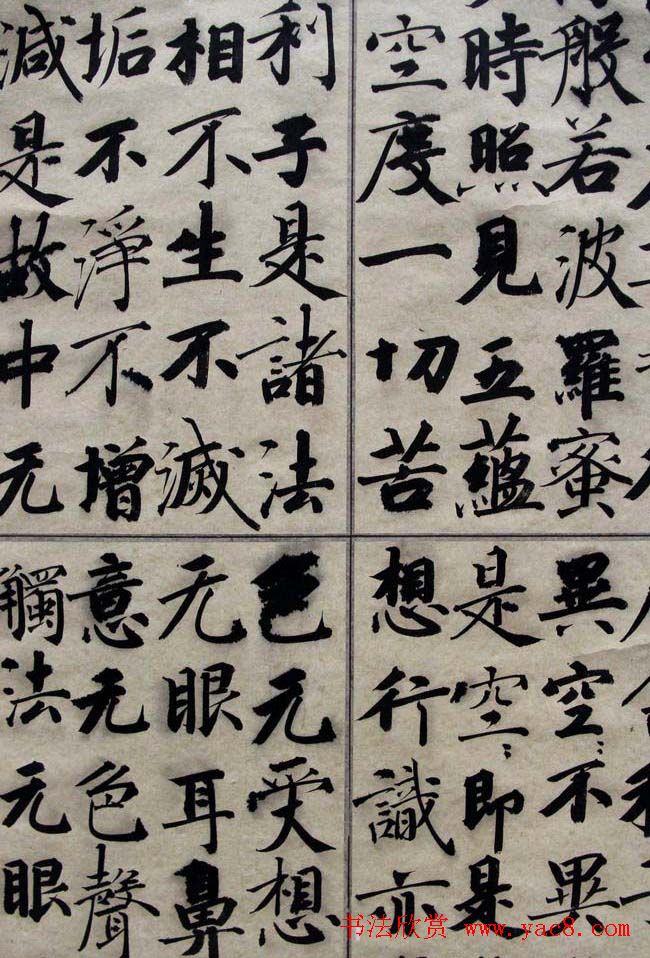 般若波羅蜜
時照見五蘊
空度一切苦
異空々不異
是空々即是
想行識亦
利子是諸法
相不生不滅
垢不淨不增
減是故中无
色无受想
无眼耳鼻
意无色聲
觸法无眼
书法欣赏 www.yac8.com